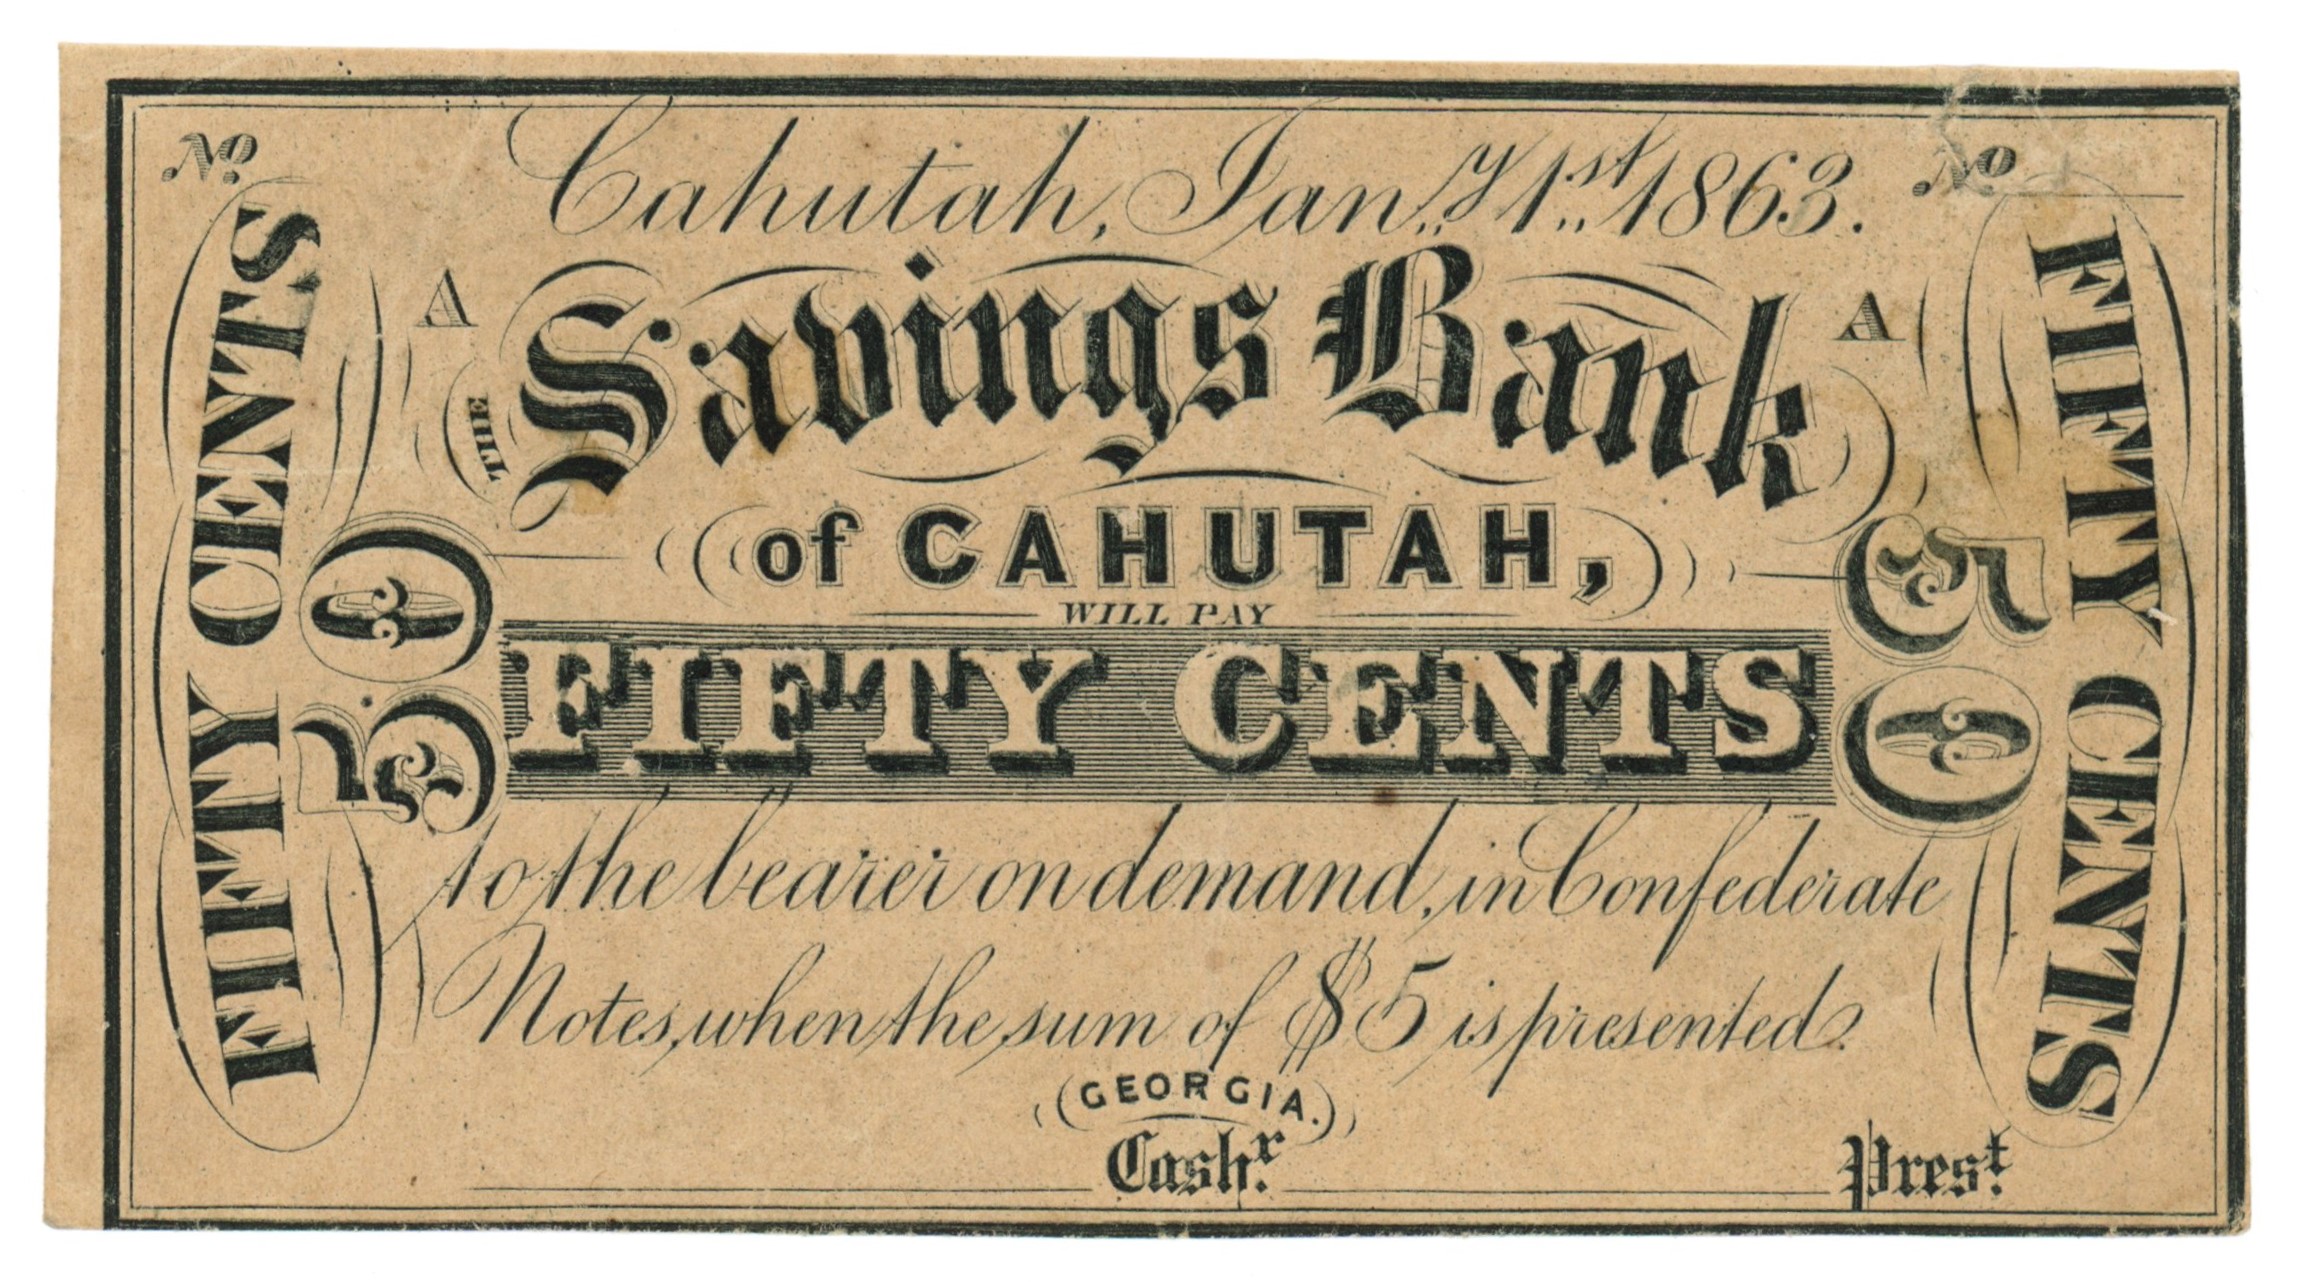 No.
Cahutah, Jan.y 1st. 1863.
No
A
A
THE
Savings Bank
of CAHUTAH,
WILL PAY
FIFTY CENTS
FIFTY CENTS
50
50
FIFTY CENTS
to the bearer on demand, in Confederate
Notes, when the sum of $5 is presented.
GEORGIA.
Cashr.
Prest.